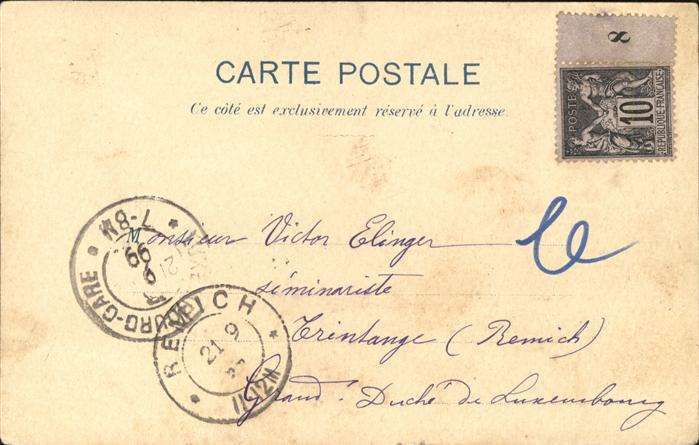 CARTE POSTALE
Ce côté est exclusivement réservé à l'adresse.
8
POSTES
10
REPUBLIQUE FRANÇAISE
Monsieur Victor Elinger
séminariste
Trintange (Remich)
Grand-Duché de Luxembourg
URG-GARE
7-8M
99
REMICH
21 9
11-12M